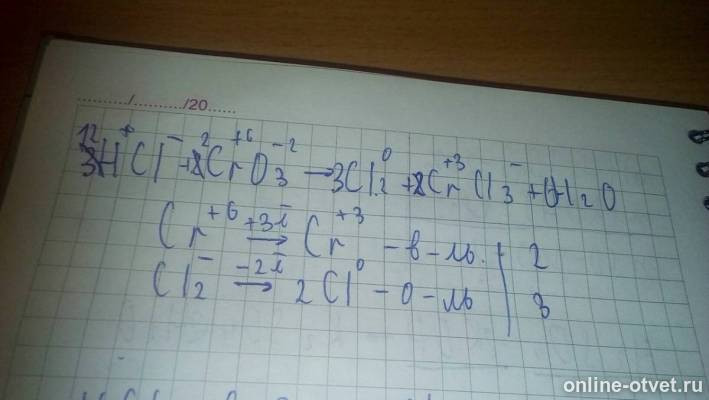 ........./........./20......
12HCl + 2CrO3 → 3Cl2 + 2CrCl3 + 6H2O
Cr+6 +3ē → Cr+3 - в-ль | 2
Cl2- -2ē → 2Cl0 - о-ль | 3
online-otvet.ru